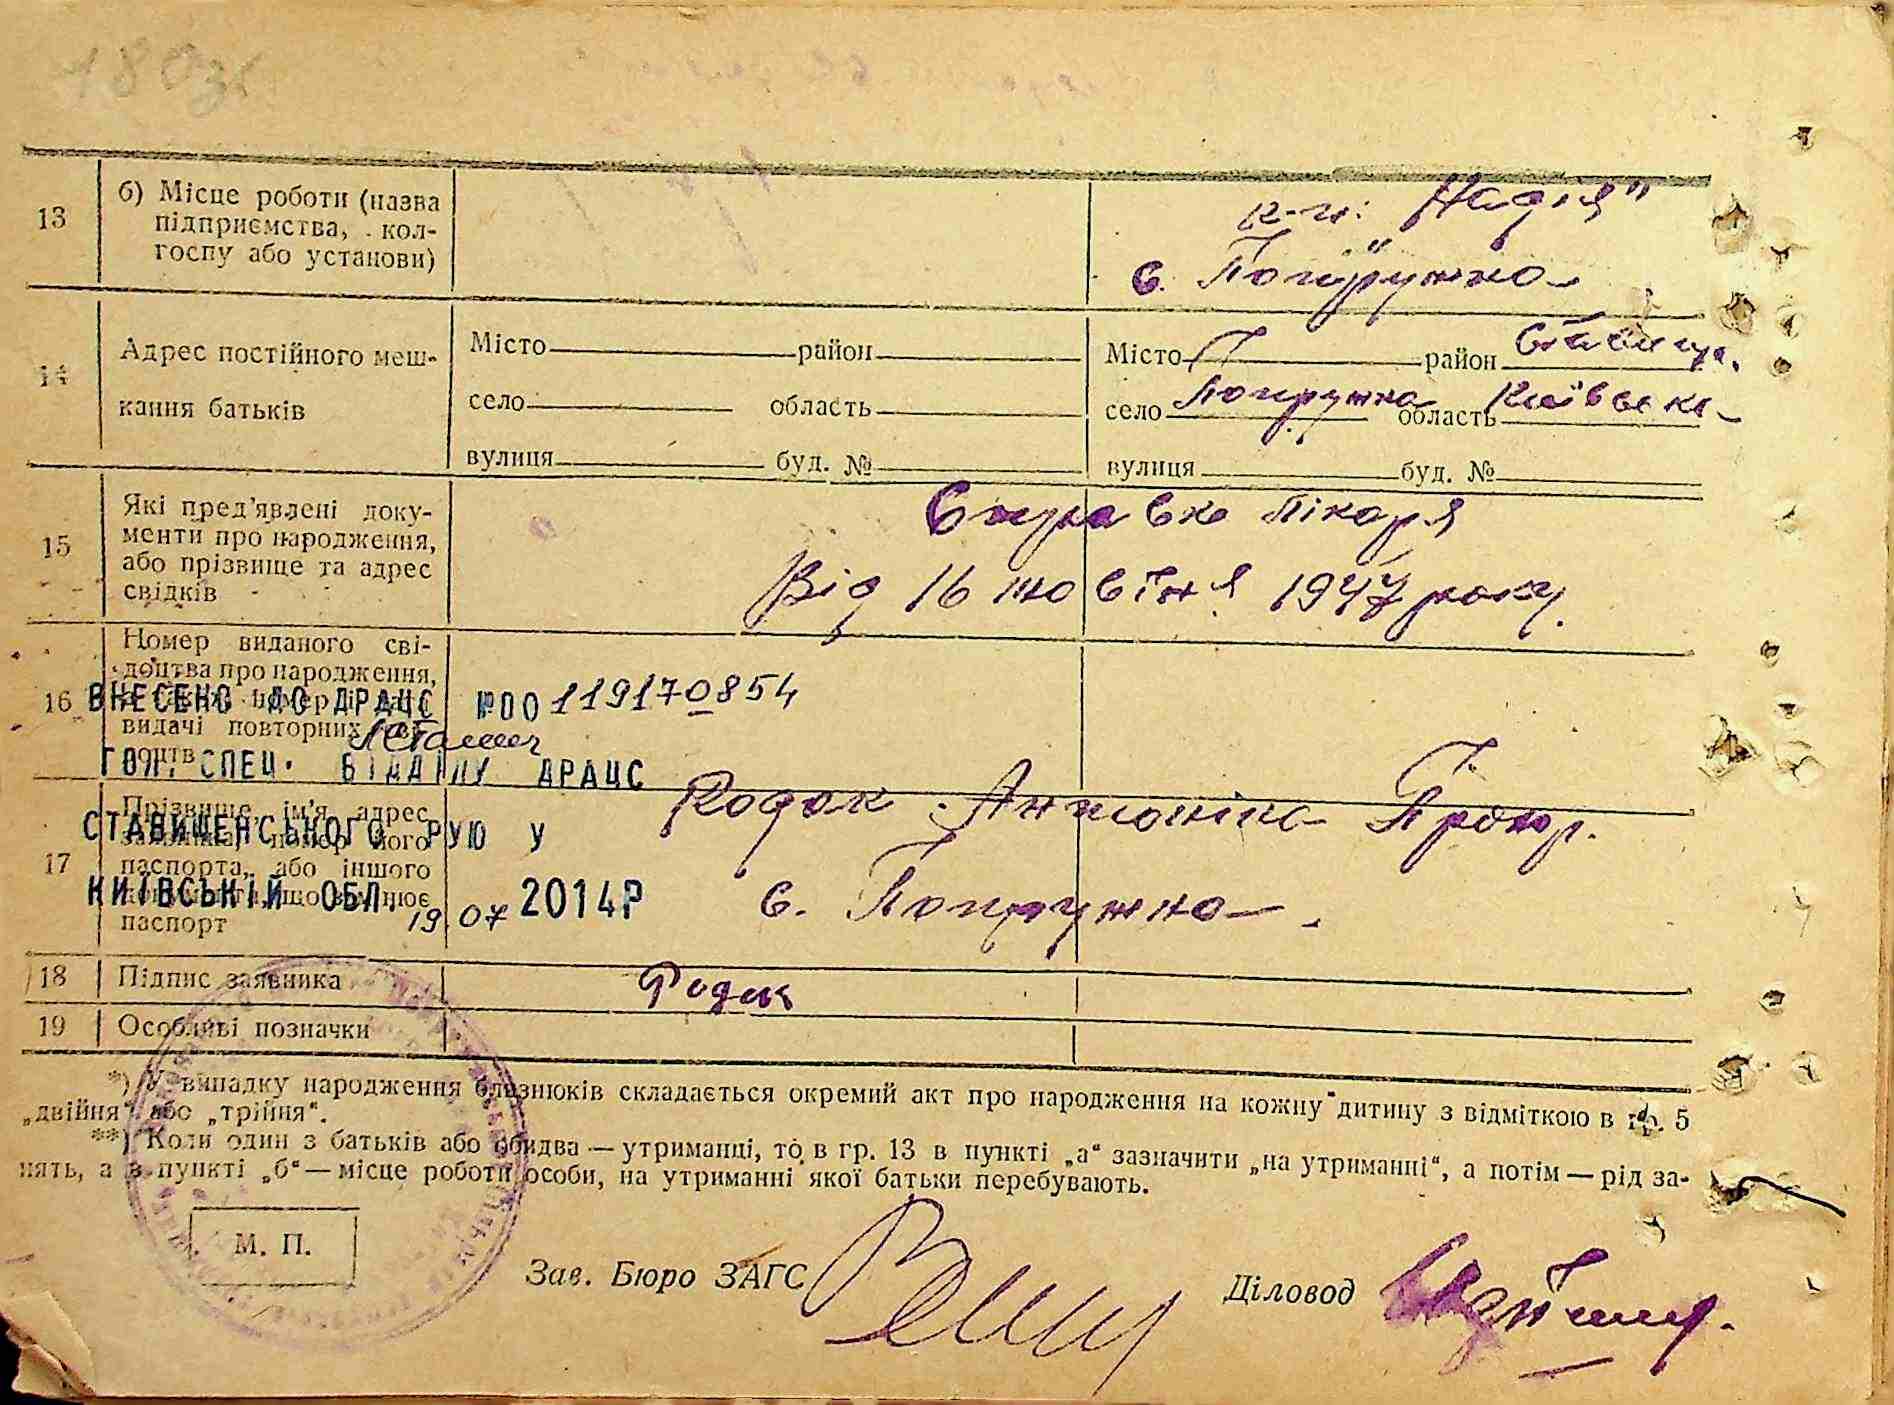 13
б) Місце роботи (назва
підприємства, кол-
госпу або установи)
к-п: „Надія"
с. Погружна
14
Адрес постійного меш-
кання батьків
Місто район
село область
вулиця буд. №
Місто район Ставище.
село Попружна область Київська
вулиця буд. №
15
Які пред'явлені доку-
менти про народження,
або прізвище та адрес
свідків
Справка лікаря
Від 16 жовтня 1947 року.
16
Номер виданого сві-
доцтва про народження,
видачі повторних
ВНЕСЕНО ДО ДРАЦС №00119170854
ГОЛ. СПЕЦ. ВІДДІЛУ ДРАЦС
СТАВИЩЕНСЬКОГО РУЮ У
КИЇВСЬКІЙ ОБЛ. 19.07 2014Р
17
Прізвище, ім'я, адрес
заявника, номер його
паспорта, або іншого
паспорт
Родак Антоніна Прокр.
с. Попружна.
18 Підпис заявника Родак
19 Особливі позначки
*) У випадку народження близнюків складається окремий акт про народження на кожну дитину з відміткою в гр. 5
„двійня" або „трійня".
**) Коли один з батьків або обидва — утриманці, то в гр. 13 в пункті „а" зазначити „на утриманні", а потім — рід за-
нять, а в пункті „б" — місце роботи особи, на утриманні якої батьки перебувають.
М. П.
Зав. Бюро ЗАГС
Діловод